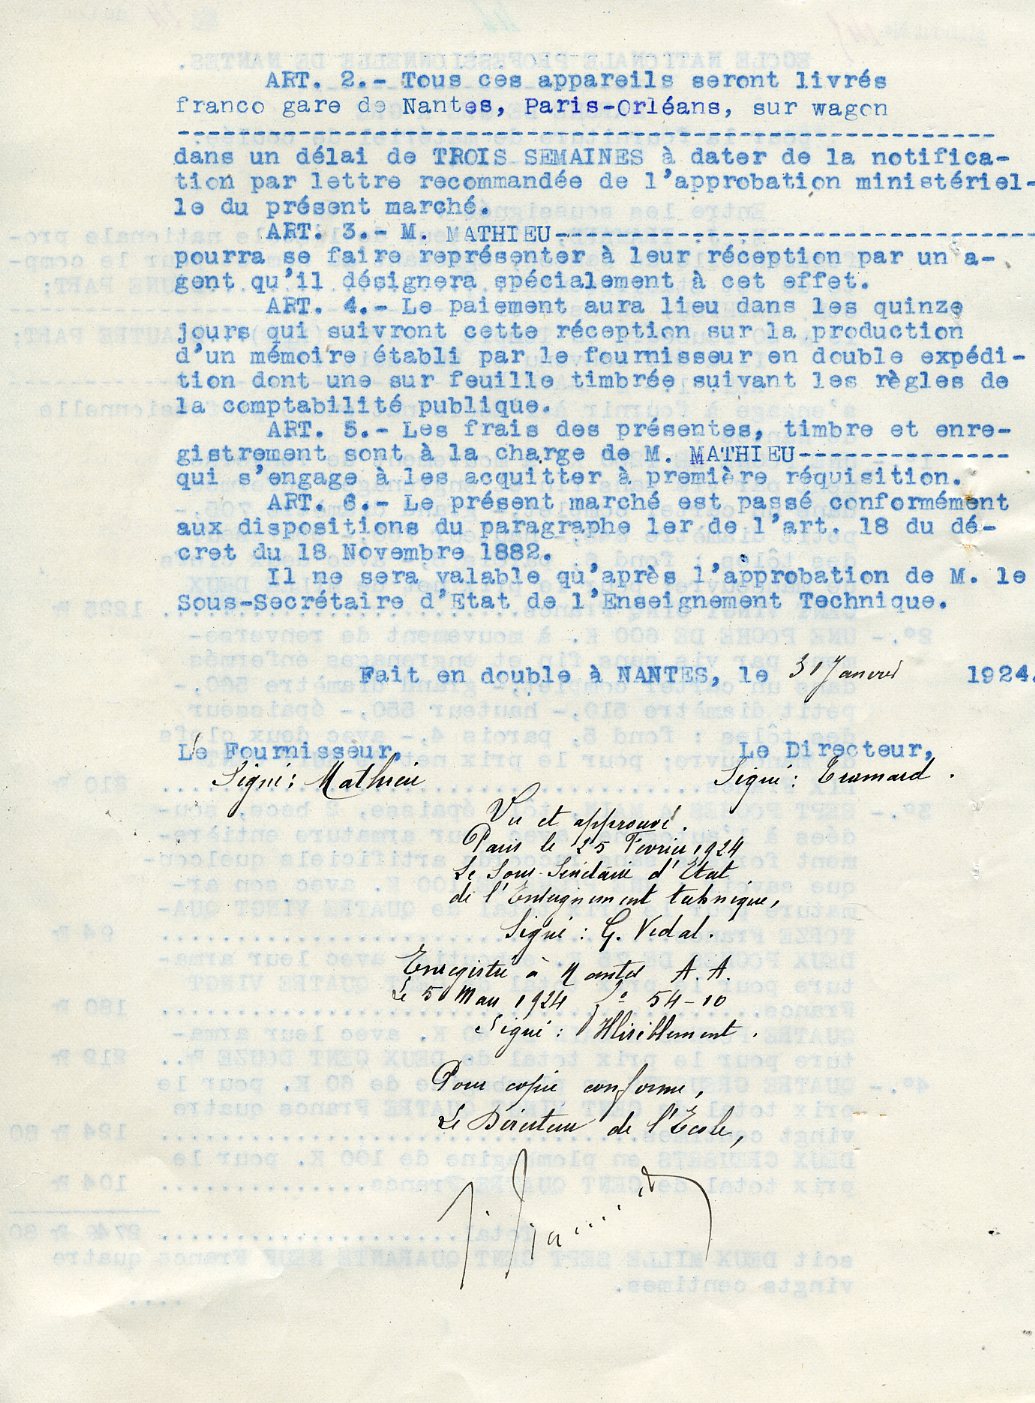 ART. 2.- Tous ces appareils seront livrés
franco gare de Nantes, Paris-Orléans, sur wagon
------------------------------------------------------
dans un délai de TROIS SEMAINES à dater de la notifica-
tion par lettre recommandée de l'approbation ministériel-
le du présent marché.
ART. 3.- M. MATHIEU--------------------------------
pourra se faire représenter à leur réception par un a-
gent qu'il désignera spécialement à cet effet.
ART. 4.- Le paiement aura lieu dans les quinze
jours qui suivront cette réception sur la production
d'un mémoire établi par le fournisseur en double expédi-
tion dont une sur feuille timbrée suivant les règles de
la comptabilité publique.
ART. 5.- Les frais des présentes, timbre et enre-
gistrement sont à la charge de M. MATHIEU--------------
qui s'engage à les acquitter à première réquisition.
ART. 6.- Le présent marché est passé conformément
aux dispositions du paragraphe 1er de l'art. 18 du dé-
cret du 18 Novembre 1882.
Il ne sera valable qu'après l'approbation de M. le
Sous-Secrétaire d'Etat de l'Enseignement Technique.
Fait en double à NANTES, le 31 Janvier 1924.
Le Fournisseur, Le Directeur,
Signé: Mathieu Signé:
Vu et approuvé.
Paris le 25 Février 1924
Le Sous-Secrétaire d'Etat
de l'Enseignement technique,
Signé: G. Vidal.
Enregistré à Nantes A.A.
Le 5 Mars 1924 F° 54-10
Signé:
Pour copie conforme,
Le Directeur de l'Ecole,